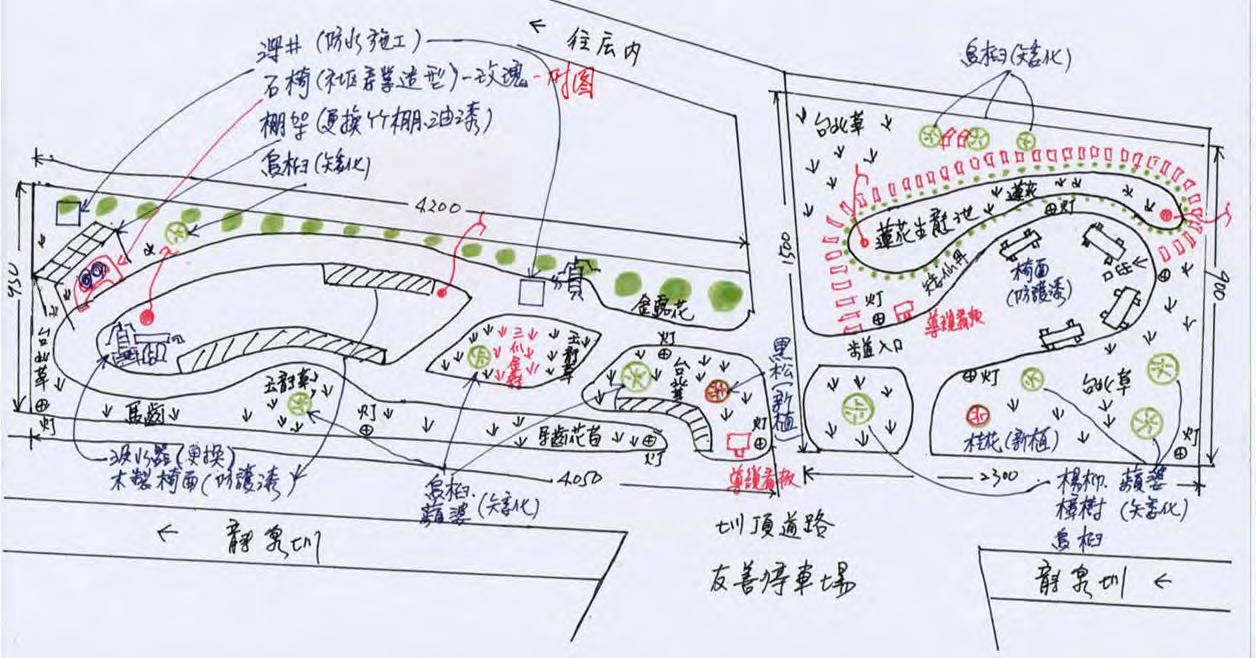 ← 往庄内
深井 (防水施工)
石椅 (社區產業造型) - 玫瑰 - 附図
棚架 (更換竹棚.油漆)
烏桕 (矮化)
烏桕 (矮化)
台北草
4200
1500
900
950
蓮花
灯
蓮花生態池
矮仙丹
椅面
(防護漆)
灯
導覽看板
步道入口
金露花
台北草
玉龍草
灯
台北草
黑松 (新植)
灯
台北草
桂花 (新植)
灯
玉龍草
馬齒
灯
灯
馬齒花苜
灯
灯
導覽看板
汲水器 (更換)
木製椅面 (防護漆)
烏桕.
蘋婆 (矮化)
4050
2300
楊柳. 蘋婆
樟樹 (矮化)
烏桕
← 龍泉圳
圳頂道路
友善停車場
龍泉圳 ←